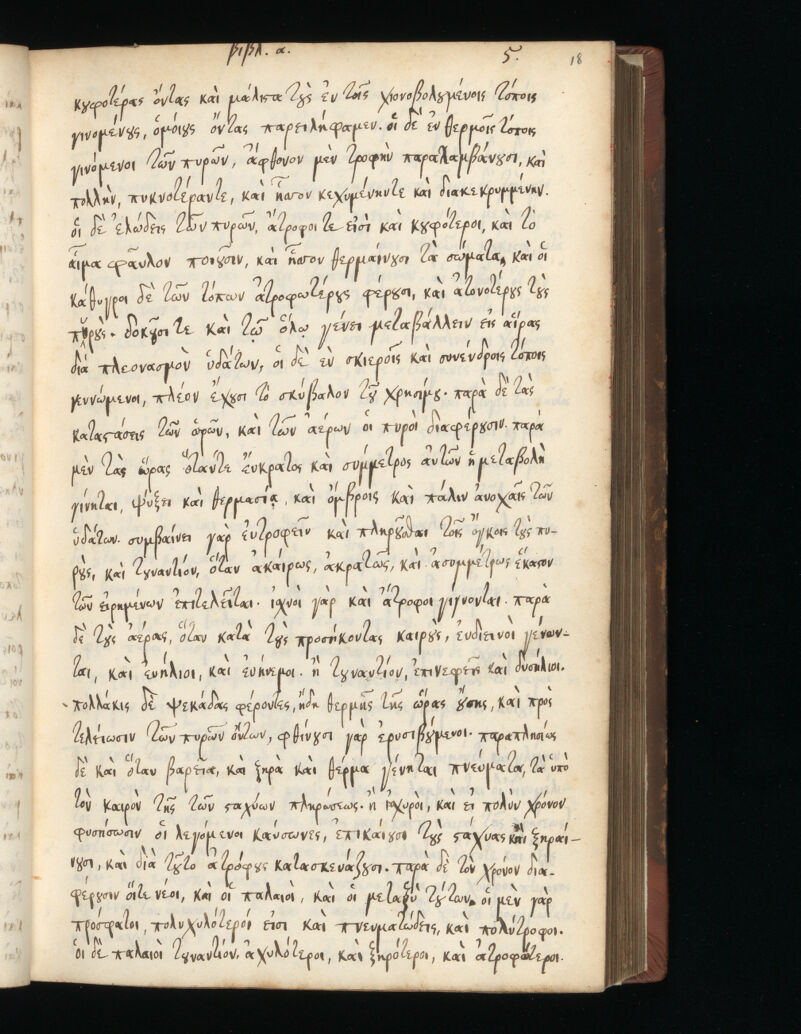 βιβλ. α. 5. 18
κουφοτέρας ὄντας καὶ μάλιστα τοὺς ἐν τοῖς χιονοβολουμένοις τόποις
γινομένους, ὁμοίους ὄντας παρειλήφαμεν. οἱ δὲ ἐν θερμοῖς τόποις
γινόμενοι τῶν πυρῶν, ἄφθονον μὲν τροφὴν παραλαμβάνουσι, καὶ
πολλὴν, πυκνοτέραντε, καὶ ἧσσον κεχυμένηντε καὶ διακεκρυμμένην.
οἱ δὲ ἑλώδεις τῶν πυρῶν, ἄτροφοι τε εἰσὶ καὶ κουφότεροι, καὶ τὸ
αἷμα φαῦλον ποιοῦσιν, καὶ ἧσσον θερμαίνουσι τὰ σώματα, καὶ οἱ
κάθυγροι δὲ τῶν τόπων ἀτροφωτέρους φέρουσι, καὶ ἀτονοτέρους τοὺς
πυρούς. δοκοῦσι τε καὶ τῷ ὅλῳ γένει μεταβάλλειν εἰς αἴρας
διὰ πλεονασμὸν ὑδάτων, οἱ δὲ ἐν σκιεροῖς καὶ συνένδροις τόποις
γεννώμενοι, πλέον ἔχουσι τὸ σκύβαλον τοῦ χρησίμου. παρὰ δὲ τὰς
καταστάσεις τῶν ὡρῶν, καὶ τῶν ἀέρων οἱ πυροὶ διαφέρουσιν. παρὰ
μὲν τὰς ὥρας ὅταντε ἔυκρατος καὶ σύμμετρος ἀυτῶν ἡ μεταβολὴ
γίνηται, ψύξει καὶ θερμασίᾳ, καὶ ὄμβροις καὶ πάλιν ἀνοχαῖς τῶν
ὑδάτων. συμβαίνει γὰρ ἐυτροφεῖν καὶ πληροῦσθαι τοῖς ὄγκοις τοὺς πυ-
ροὺς, καὶ τουναντίον, ὅταν ἀκαίρως, ἀκρατῶς, καὶ ἀσυμμέτρως ἕκαστον
τῶν εἰρημένων ἐπιτελεῖται. ἰχνοὶ γὰρ καὶ ἄτροφοι γίγνονται. παρὰ
δὲ τοὺς ἀέρας, ὅταν κατὰ τοὺς προσήκοντας καιροὺς, ἐυδιεινοὶ γένων-
ται, καὶ ἐυήλιοι, καὶ ἐυήνεμοι. ἢ τουναντίον, ἐπινεφεῖς καὶ δυσήλιοι.
πολλάκις δὲ ψεκάδας φέροντες, ἤδη θερμῆς τῆς ὥρας οὔσης, καὶ πρὸς
τελείωσιν τῶν πυρῶν ὄντων, φθίνουσι γὰρ ἐρυσιβούμενοι. παραπλησίως
δὲ καὶ ὅταν βαρεῖα, καὶ ξηρὰ καὶ θέρμα γένηται πνεύματα, τὰ ὑπὸ
τὸν καιρὸν τῆς τῶν σταχύων πληρώσεως. ἢ ἰσχυροὶ, καὶ εἰ πολὺν χρόνον
φυσήσωσιν οἱ λεγόμενοι καύσωνες, ἐπικαίουσι τοὺς στάχυας καὶ ξηραί-
νουσι, καὶ διὰ τοῦτο ἀτρόφους κατασκευάζουσι. παρὰ δὲ τὸν χρόνον δια-
φέρουσιν οἵτε νέοι, καὶ οἱ παλαιοὶ, καὶ οἱ μεταξὺ τούτων. οἱ μὲν γὰρ
πρόσφατοι, πολυχυλότεροί εἰσι καὶ πνευματώδεις, καὶ πολύτροφοι.
οἱ δὲ παλαιοὶ τουναντίον. ἀχυλότεροι, καὶ ξηρότεροι, καὶ ἀτροφώτεροι.